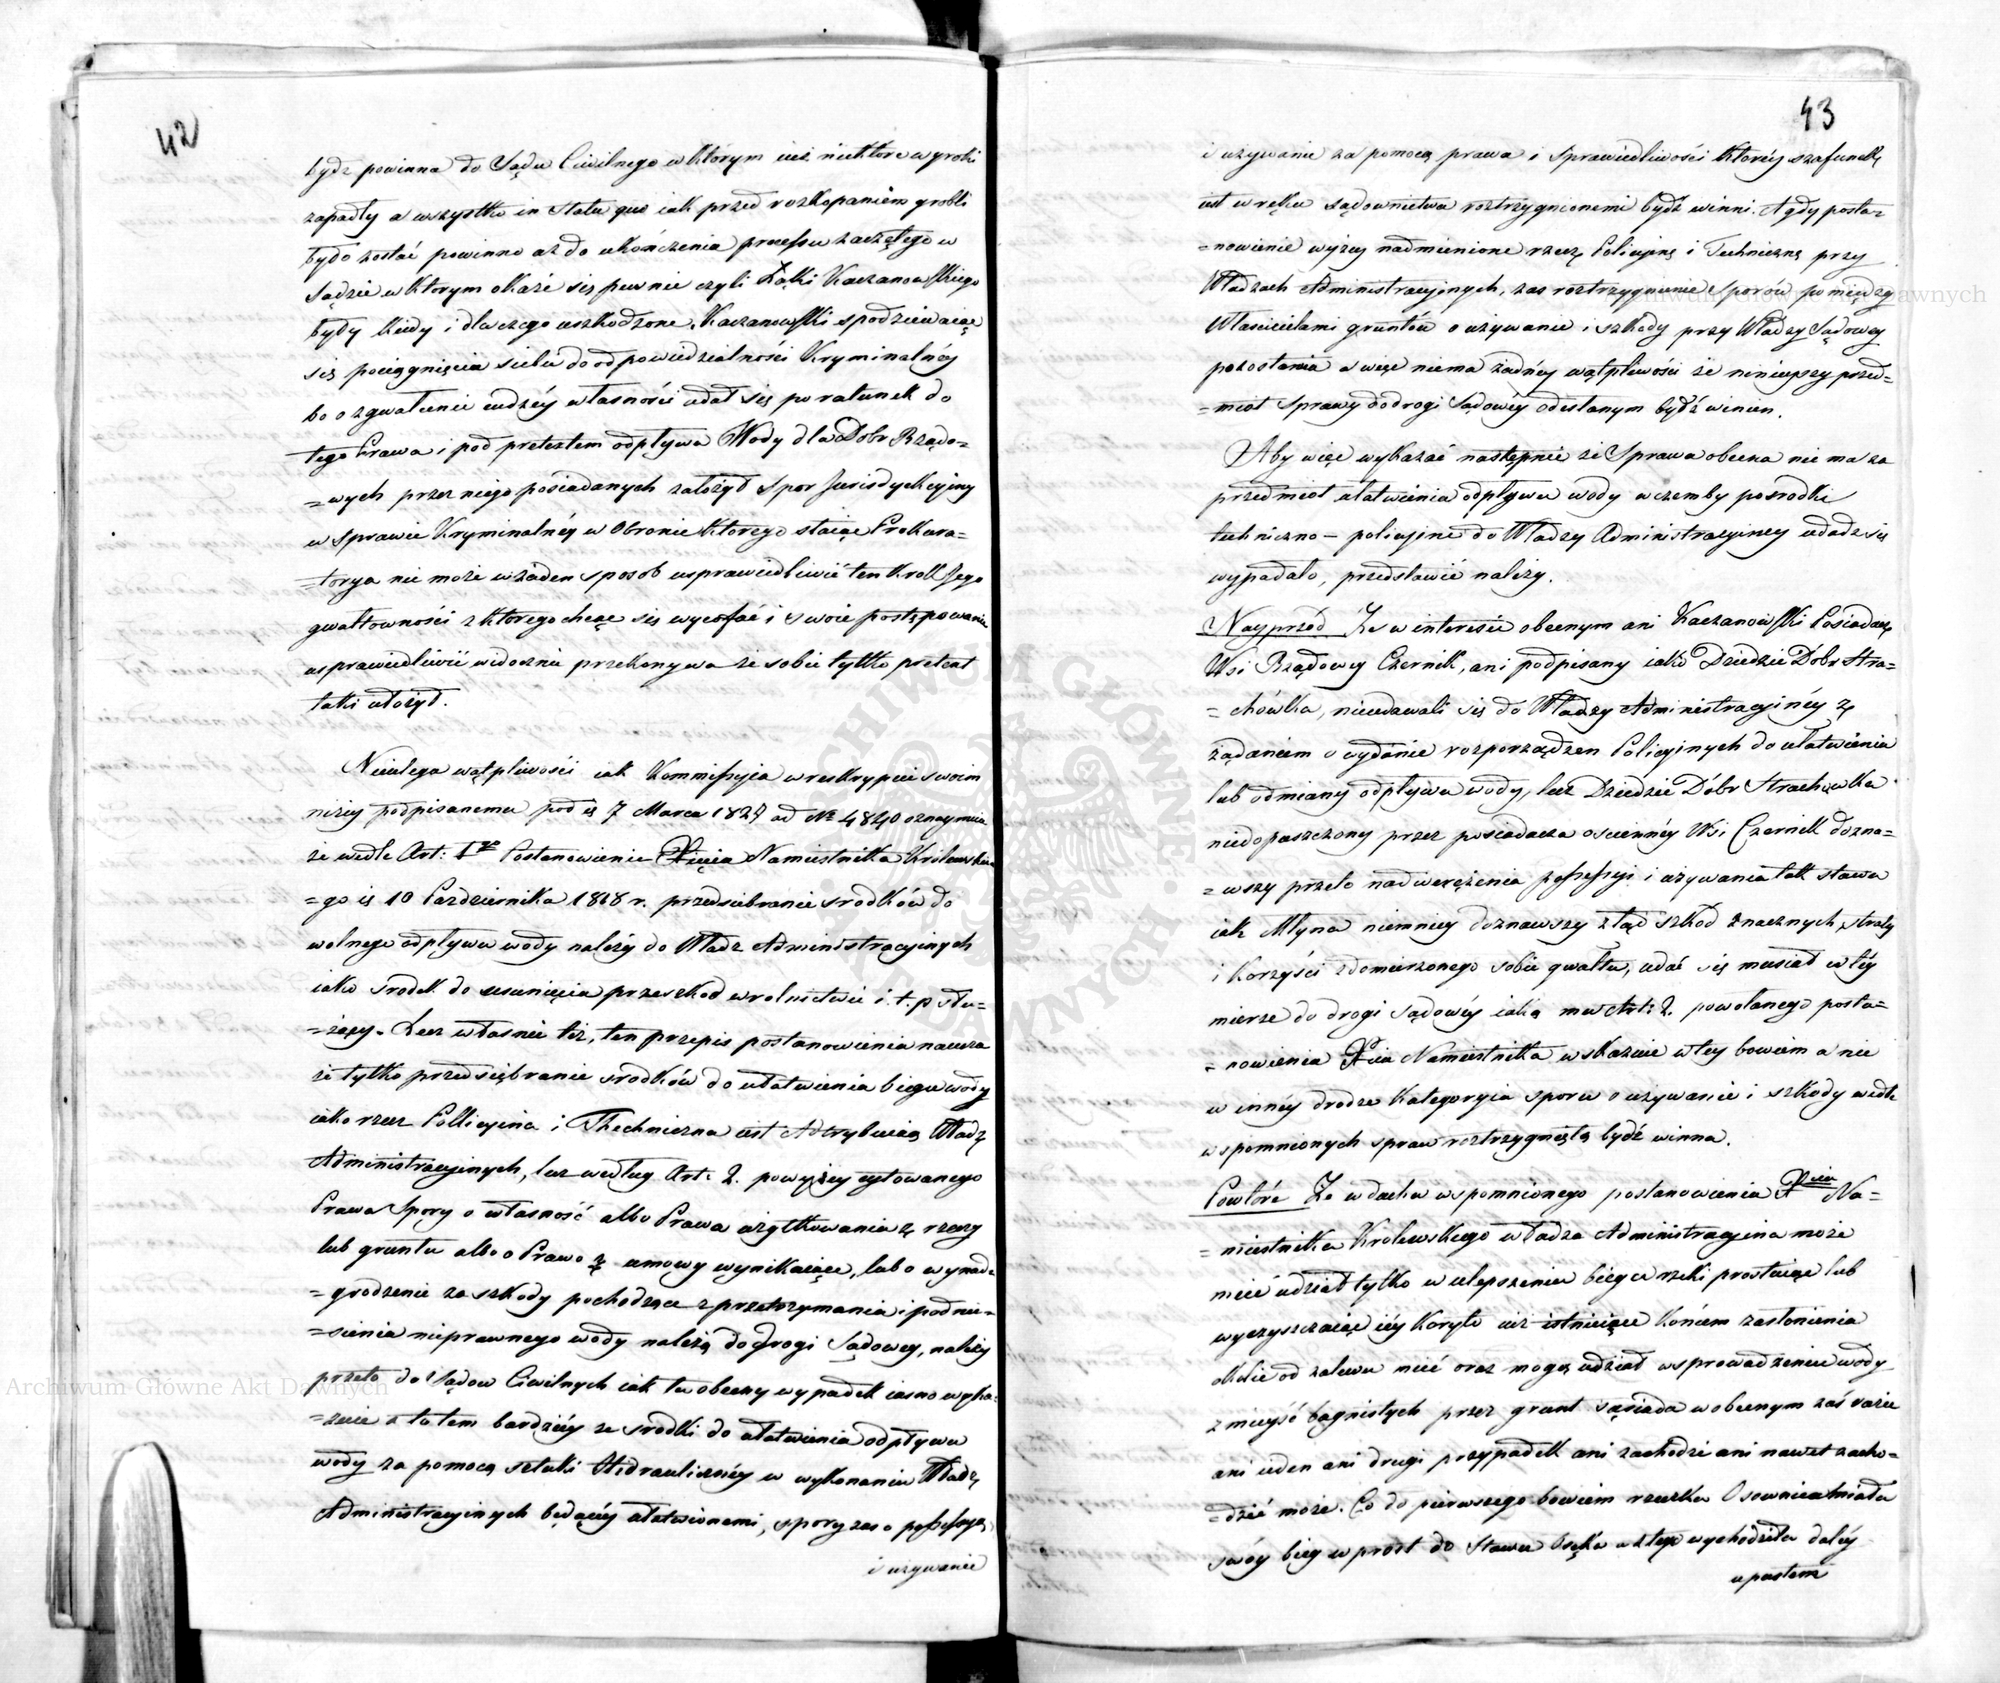 42
bydź powinna do Sądu Civilnego w którym iuż niektóre wyroki
zapadły a wszystko in statu quo iak przed rozkopaniem grobli
było zostać powinno aż do ukończenia processu zaczętego w
Sądzie w którym okaże się pewnie czyli Łąki Kaczanowskiego
były kiedy i dla czego uszkodzone. Kaczanowski spodziewaiąc
się pociągnięcia siebie do odpowiedzialności Kryminalnéy
bo o zgwałcenie cudzéy własności udał się po ratunek do
tego Prawa i pod pretextem odpływu Wody dla Dobr Rządo=
=wych przez niego posiadanych założył Spor Jurisdykcyiny
w sprawie Kryminalnéy w Obronie którego staiąc Prokura=
=torya nie może w żaden sposob usprawiedliwić ten krok Jego
gwałtowności z którego chcąc się wycofać i swoie postępowanie
usprawiedliwić widocznie przekonywa że sobie tylko pretext
taki ułożył.
Nieulega wątpliwości iak Kommissyia w reskrypcie swoim
niżey podpisanemu pod d 7 Marca 1827 ad No 4840 oznaymia
że wedle Art: 1go Postanowienia Xięcia Namiestnika Królewskie
=go d 10 Października 1818 r. przedsiebranie srodków do
wolnego odpływu wody należy do Władz Administracyinych
iako srodek do usunięcia przeszkod w rolnictwie i. t. p słu=
=żący. Lecz właśnie też, ten przepis postanowienia naucza
że tylko przedsiębranie srodków do ułatwienia biegu wody
iako rzecz Pollicyina i Thechniczna iest Attrybucią Władz
Administracyinych, lecz według Art: 2. powyżey cytowanego
Prawa Spory o własność albo Prawa użytkowania z rzeczy
lub gruntu albo o Prawo z umowy wynikaiące, lub o wynad=
=grodzenie za szkody pochodzące z przetrzymania i podnie=
=sienia nieprawnego wody należą do drogi Sądowey, należy
przeto do Sądow Civilnych iak tu obecny wypadek iasno wyka=
=zuie a to tem bardziéy że srodki do ułatwienia odpływu
wody za pomocą sztuki Hidrauliczney w wykonaniu Władz
Administracyinych będącéy ułatwionemi, spory zaś o possessyą
i używanie
43
i używanie za pomocą prawa i sprawiedliwości któréy szafunek
iest w ręku sądownictwa roztrzygnionemi bydź winni. A gdy posta=
=nowienie wyżey nadmienione rzecz Policyiną i Techniczną przy
Władzach Administracyinych, zaś roztrzygnienie Sporów pomiędzy
Właścicielami gruntów o używanie i szkody przy Władzy Sądowey
pozostawia a więc niema żadnéy wątpliwości że ninieyszy przed=
=miot Sprawy do drogi Sądowéy odesłanym bydź winien.
Aby więc wykazać następnie że Sprawa obecna nie ma za
przedmiot ułatwienia odpływu wody w czemby posrodki
techniczno - policyjne do Władzy Administracyiney udadź się
wypadało, przedstawić należy.
Nayprzod Że w interesie obecnym ani Kaczanowski Posiadacz
Wsi Rządowey Czernik, ani podpisany iako Dziedzic Dobr Stra=
=chówka, nieudawali się do Władzy Administracyinéy z
żądaniem o wydanie rozporządzen Policyinych do ułatwienia
lub odmiany odpływu wody, lecz Dziedzic Dóbr Strachówka
niedopuszczony przez posiadacza osciennéy Wsi Czernik dozna=
=wszy przeto nadwerężenia possessyi i używania tak stawu
iak Młyna niemniey doznawszy ztąd szkod znacznych, straty
i korzyści z domierzonego sobie gwałtu, udać się musiał w téy
mierze do drogi Sądowéy iaką mu Art: 2. powołanego posta=
=nowienia Xcia Namiestnika wskazuie w tey bowiem a nie
w innéy drodze kategoryia sporu o używanie i szkody wedle
wspomnionych spraw roztrzygniętą bydź winna.
Powtóre Że w duchu wspomnionego postanowienia Xcia Na=
=miestnika Królewskiego władza Administracyina może
mieć udział tylko w ulepszeniu biegu rzeki prostuiąc lub
wyczyszczaiąc iéy koryto iuż istnieiące końcem zasłonienia
okolic od zalewu nieć oraz mogą udział w sprowadzeniu wody
z mieysć bagnistych przez grunt sąsiada w obecnym zaś razie
ani ieden ani drugi przypadek ani zachodzi ani nawet zacho=
=dzić może. Co do pierwszego bowiem rzeczka Osownica miała
swóy bieg wprost do Stawu Osęka a ztego wychodziła daléy
upustem